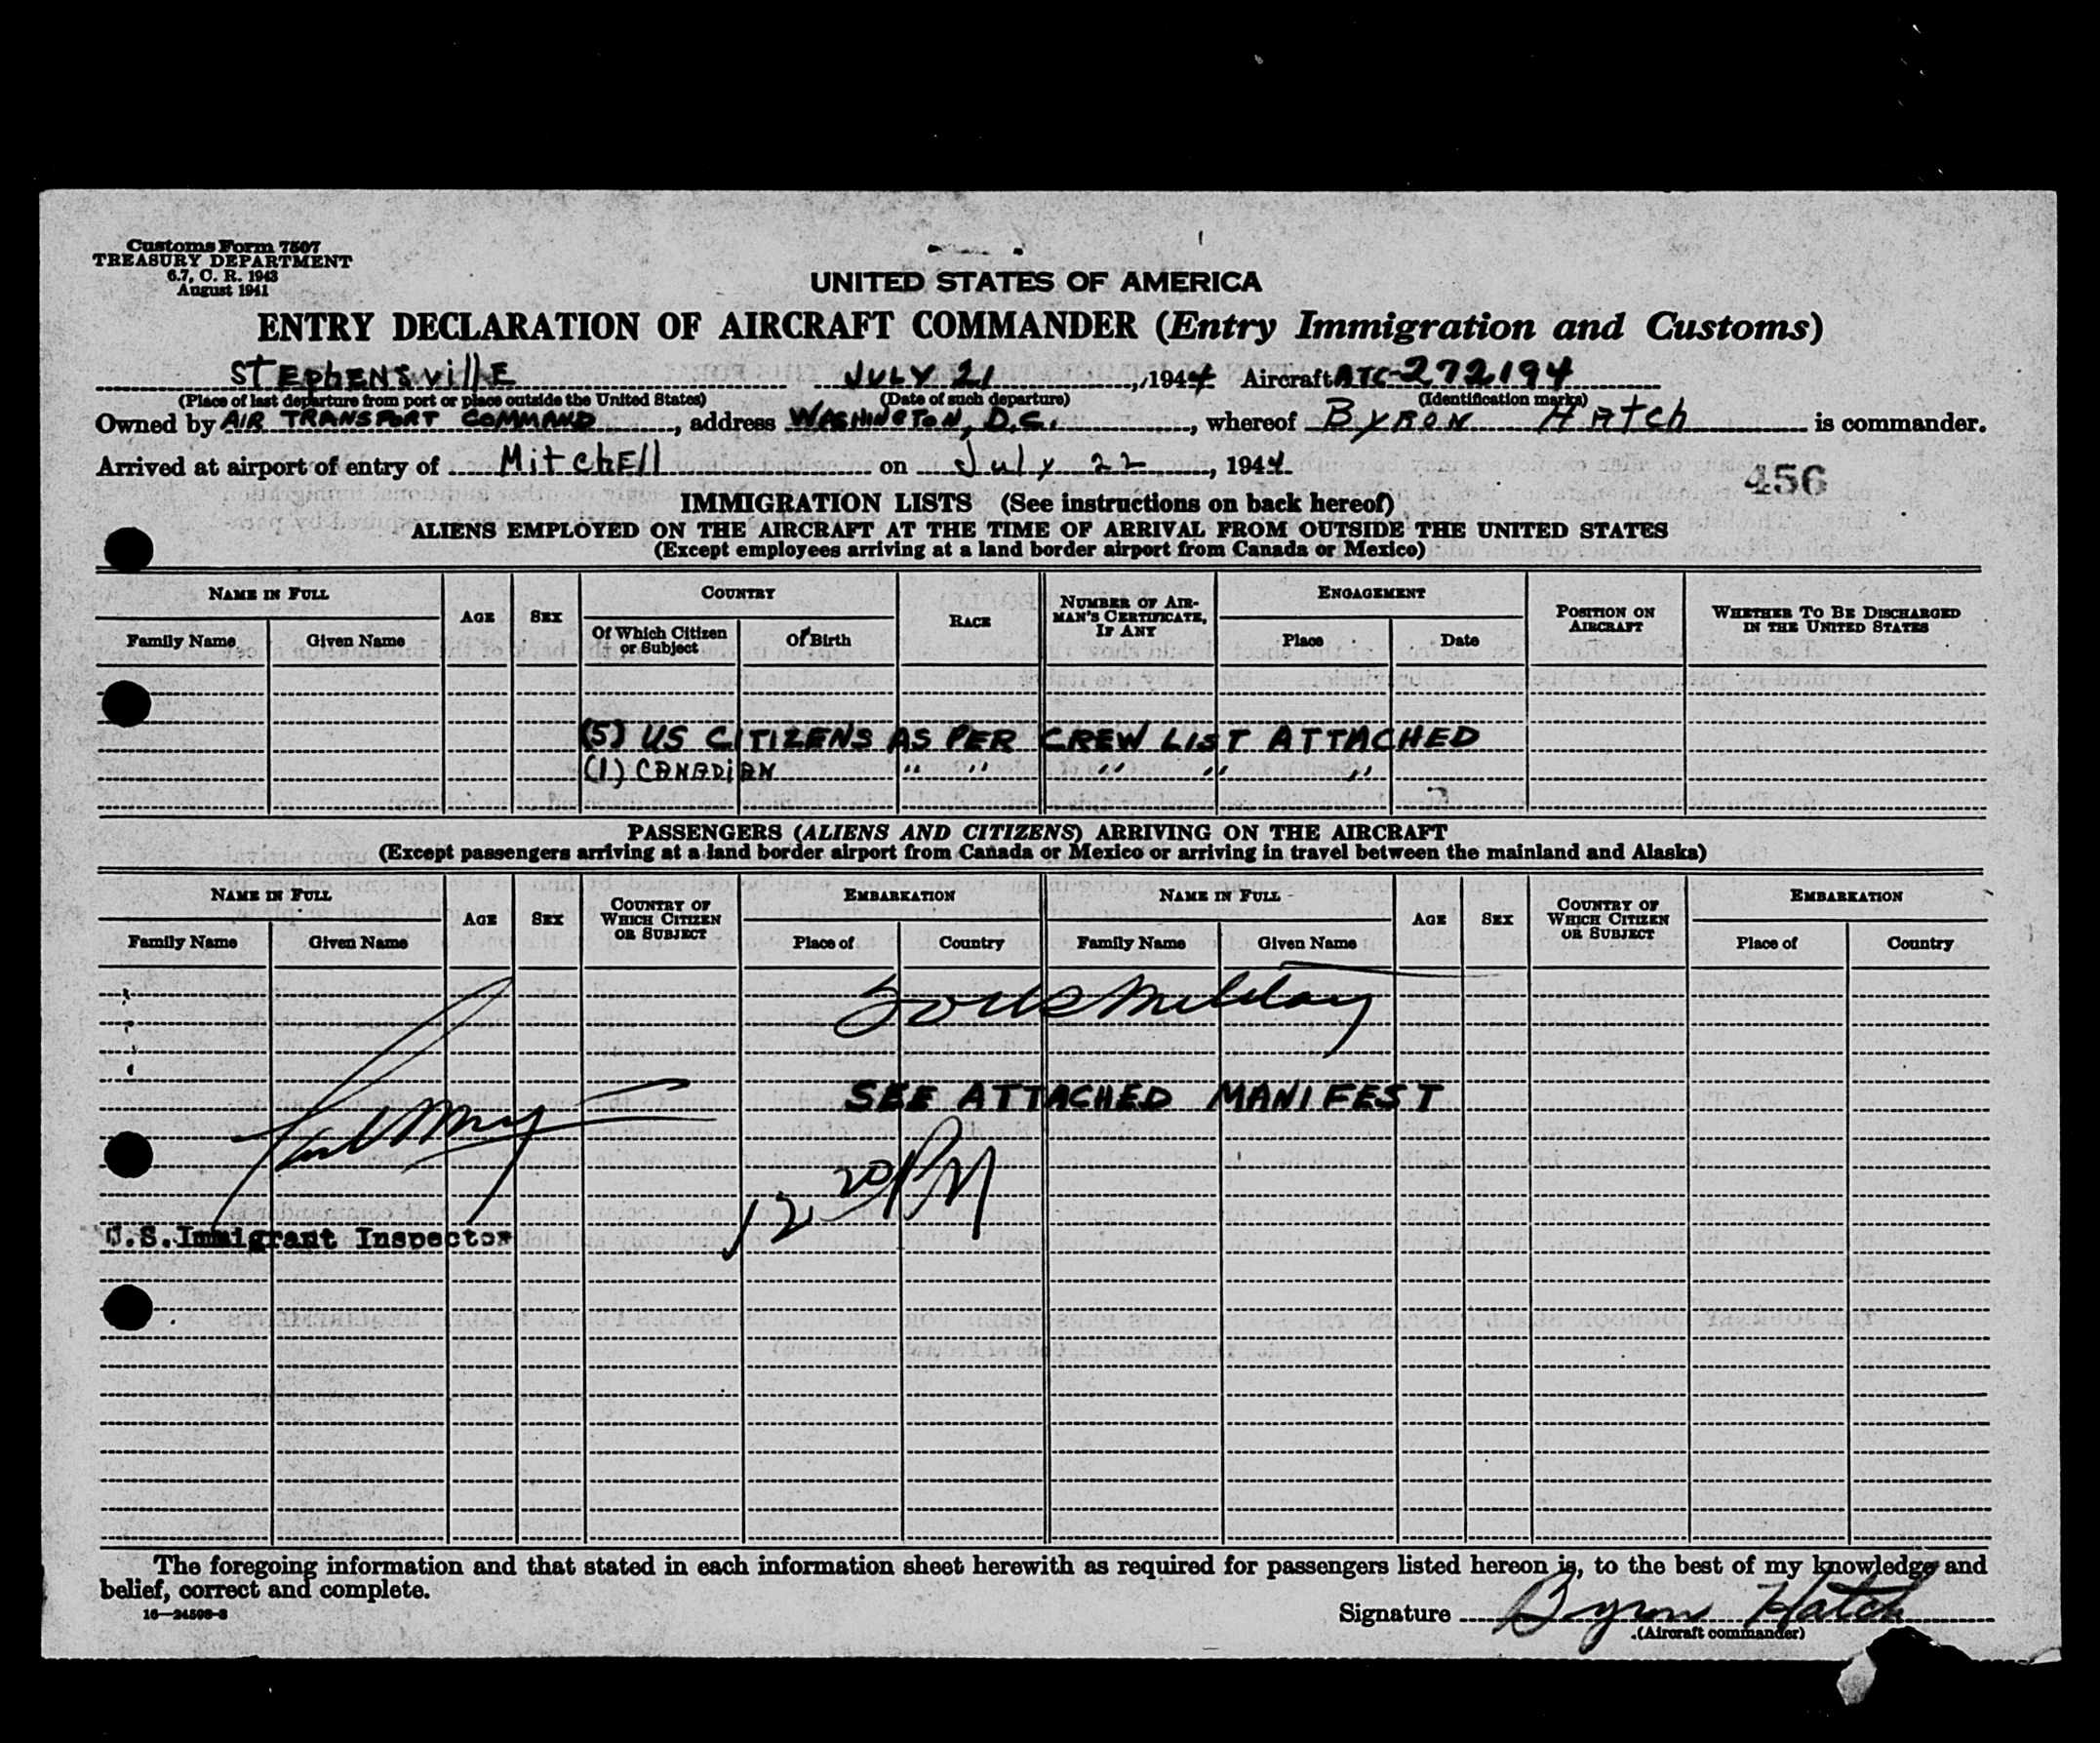 Customs Form 7507
TREASURY DEPARTMENT
6.7, C. R. 1943
August 1941
UNITED STATES OF AMERICA
ENTRY DECLARATION OF AIRCRAFT COMMANDER (Entry Immigration and Customs)
STEPhENSvillE JULY 21, 1944 Aircraft ATC-272194
(Place of last departure from port or place outside the United States) (Date of such departure) (Identification marks)
Owned by AIR TRANSPORT COMMAND, address WASHINGTON, D.C., whereof BYRON HATCh is commander.
Arrived at airport of entry of MitchEll on July 22, 1944
456
IMMIGRATION LISTS (See instructions on back hereof)
ALIENS EMPLOYED ON THE AIRCRAFT AT THE TIME OF ARRIVAL FROM OUTSIDE THE UNITED STATES
(Except employees arriving at a land border airport from Canada or Mexico)
NAME IN FULL AGE SEX COUNTRY RACE NUMBER OF AIRMAN'S CERTIFICATE, IF ANY ENGAGEMENT POSITION ON AIRCRAFT WHETHER TO BE DISCHARGED IN THE UNITED STATES
Family Name Given Name Of Which Citizen or Subject Of Birth Place Date
(5) US CITIZENS AS PER CREW LIST ATTACHED
(1) CANADiAN " " " " "
PASSENGERS (ALIENS AND CITIZENS) ARRIVING ON THE AIRCRAFT
(Except passengers arriving at a land border airport from Canada or Mexico or arriving in travel between the mainland and Alaska)
NAME IN FULL AGE SEX COUNTRY OF WHICH CITIZEN OR SUBJECT EMBARKATION NAME IN FULL AGE SEX COUNTRY OF WHICH CITIZEN OR SUBJECT EMBARKATION
Family Name Given Name Place of Country Family Name Given Name Place of Country
SEE ATTACHED MANIFEST
12 20 PM
U.S.Immigrant Inspector
The foregoing information and that stated in each information sheet herewith as required for passengers listed hereon is, to the best of my knowledge and
belief, correct and complete.
16—24508-3
Signature Byron Hatch
(Aircraft commander)